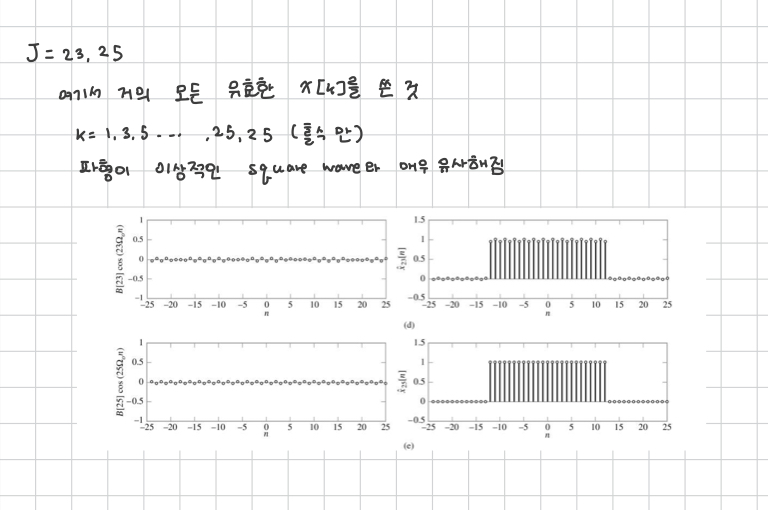 J = 23, 25
여기서 거의 모든 유효한 X[k]를 쓴 것
k = 1, 3, 5 - - - , 25, 25 (홀수 만)
파형이 이상적인 square wave와 매우 유사해짐
B[23] cos (23Ωₒn)
1
0.5
0
−0.5
−1
−25 −20 −15 −10 −5 0 5 10 15 20 25
n
x̂₂₃[n]
1.5
1
0.5
0
−0.5
−25 −20 −15 −10 −5 0 5 10 15 20 25
n
(d)
B[25] cos (25Ωₒn)
1
0.5
0
−0.5
−1
−25 −20 −15 −10 −5 0 5 10 15 20 25
n
x̂₂₅[n]
1.5
1
0.5
0
−0.5
−25 −20 −15 −10 −5 0 5 10 15 20 25
n
(e)